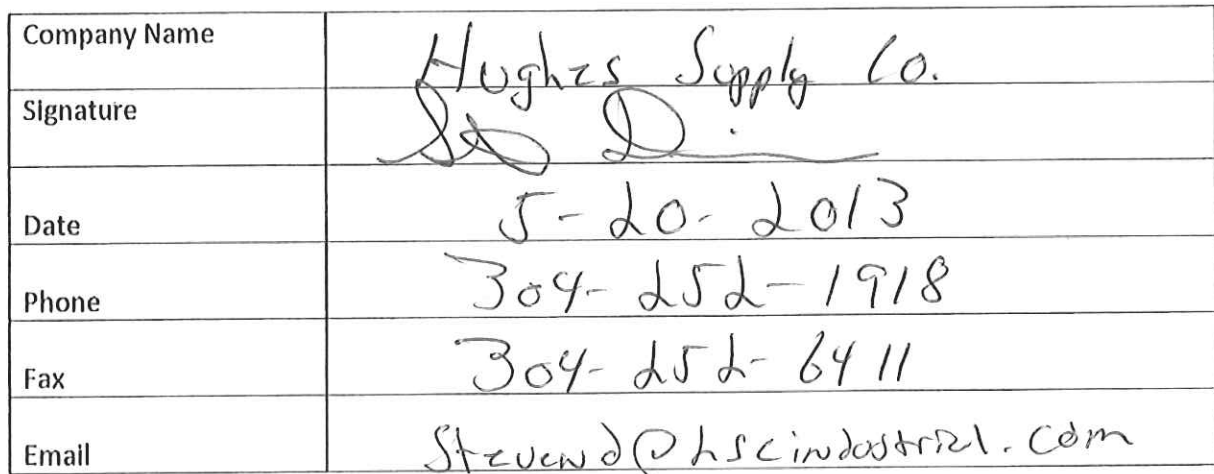 Company Name Hughes Supply Co.
Signature
Date 5-20-2013
Phone 304-252-1918
Fax 304-252-6411
Email Stevend@hscindustrial.com